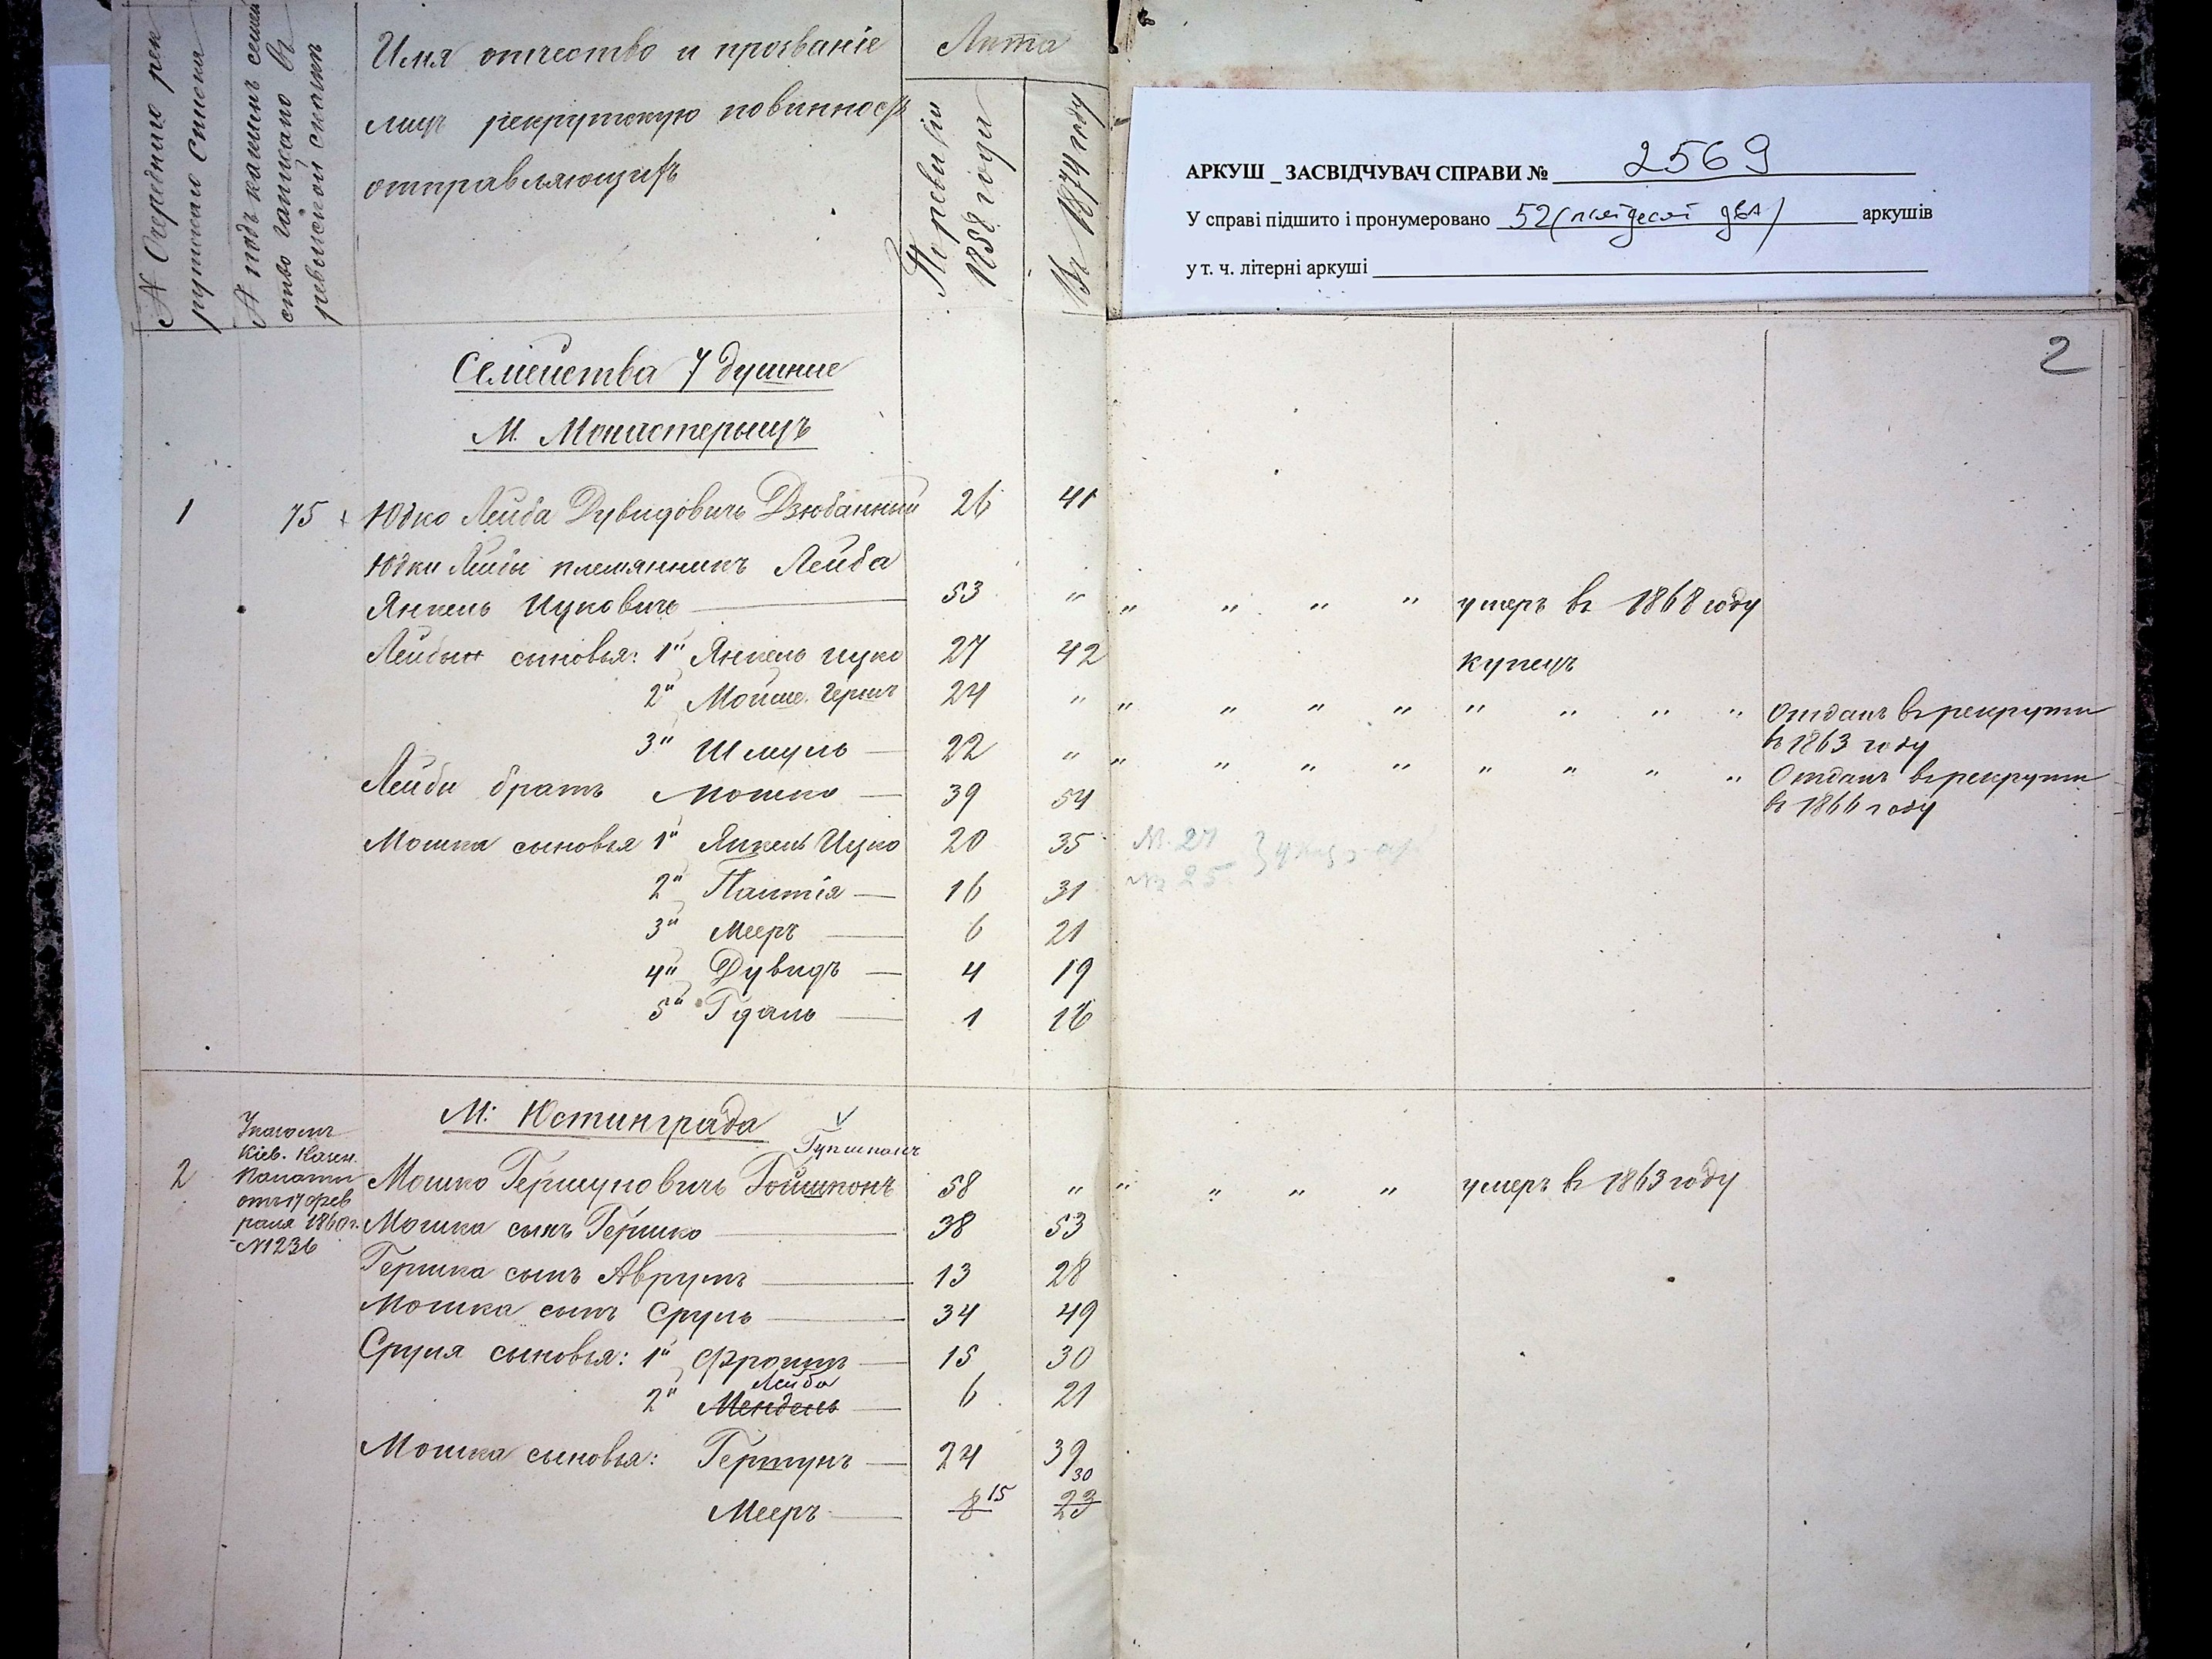 № Очередного рек
рутскаго списка
№ подъ какимъ семей
ство записано въ
ревизской сказкѣ
Имя отчество и прозваніе
лицъ рекрутскую повинность
отправляющихъ
Лѣта
По ревизіи
1858 года
Въ 1874 году
АРКУШ _ ЗАСВІДЧУВАЧ СПРАВИ № 2569
У справі підшито і пронумеровано 52 (пятдесят два) аркушів
у т. ч. літерні аркуші
2
Семейства 7 душние
М. Монастерыщъ
1 75 Юдко Лейба Дувидовичъ Дзюбанный 26 41
Юдки Лейбы племянникъ Лейба
Янкель Ицковичъ 53 " " " " " умеръ въ 1868 году
Лейбы сыновья: 1й Янкель Ицко 27 42 купецъ
2й Мойше Гершъ 24 " " " " " " " " " Отданъ въ рекруты
въ 1863 году
3й Шмуль 22 " " " " " " " " " Отданъ въ рекруты
въ 1866 году
Лейбы братъ Мошко 39 54
Мошка сыновья 1й Янкель Ицко 20 35 № 27
2й Палтія 16 31 № 25
3й Мееръ 6 21
4й Дувидъ 4 19
5й Гдаль 1 16
М: Юстинграда
Указомъ
Кіев. Казен.
Палаты
отъ 17 фев
раля 1860 г.
№ 1236
Гупшконъ
2 Мошко Гершуновичъ Гойшконъ 58 " " " " " умеръ въ 1863 году
Мошка сынъ Гершко 38 53
Гершка сынъ Аврумъ 13 28
Мошка сынъ Сруль 34 49
Сруля сыновья: 1й Фроимъ 15 30
Лейба
2й Мендель 6 21
Мошка сыновья: Гершунъ 24 39
Мееръ 8 15 23 30